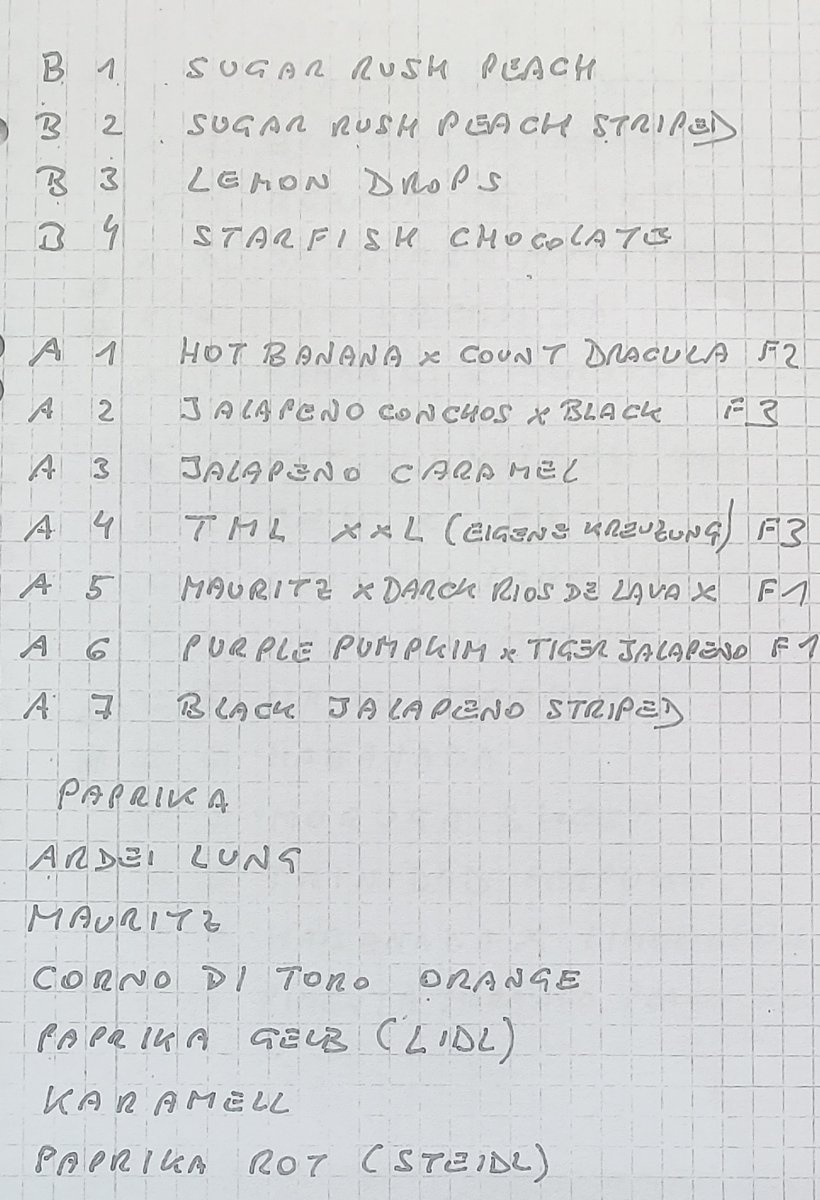 B 1 SUGAR RUSH PEACH
B 2 SUGAR RUSH PEACH STRIPED
B 3 LEMON DROPS
B 4 STARFISH CHOCOLATE
A 1 HOT BANANA x COUNT DRACULA F2
A 2 JALAPENO CONCHOS x BLACK F3
A 3 JALAPENO CARAMEL
A 4 TML XXL (EIGENE KREUZUNG) F3
A 5 MAURITZ x DARCK RIOS DE LAVA X F1
A 6 PURPLE PUMPKIM x TIGER JALAPENO F1
A 7 BLACK JALAPENO STRIPED
PAPRIKA
ARDEI LUNG
MAURITZ
CORNO DI TORO ORANGE
PAPRIKA GELB (LIDL)
KARAMELL
PAPRIKA ROT (STEIDL)